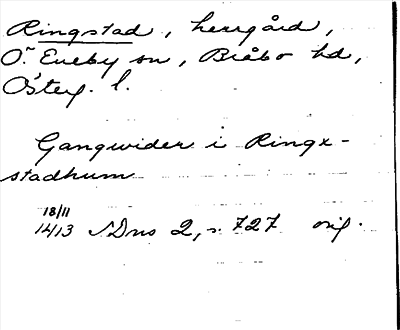 Ringstad, herrgård,
Ö. Eneby sn, Bråbo hd,
Österg. l.
Gangwider i Ringx-
stadhum
18/11
1413 SDns 2, s. 727 orig.